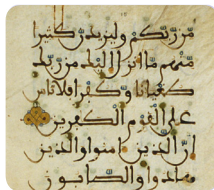 من ربكم وليزيدن كثيرا
منهم ما انزل اليك من ربك
طغينا وكفرا فلا تاس
على القوم الكفرين
ان الذين امنوا والذين
هادوا والصابون